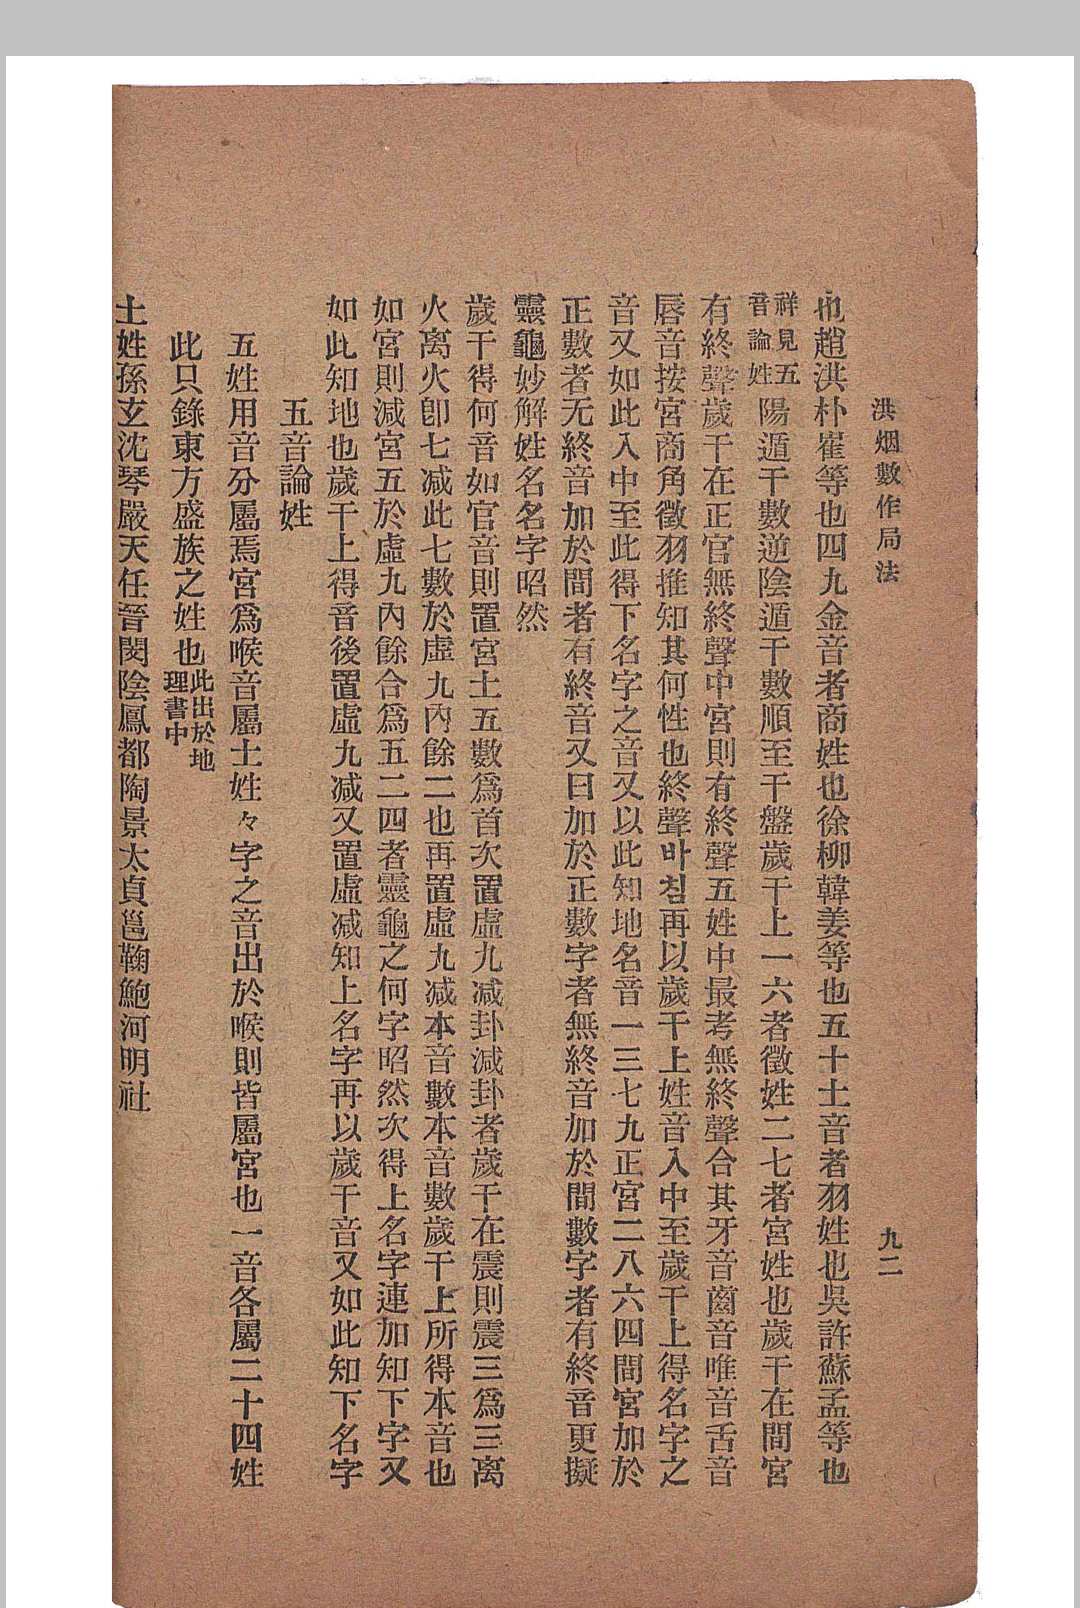 洪烟數作局法
九二
也趙洪朴崔等也四九金音者商姓也徐柳韓姜等也五十土音者羽姓也吳許蘇孟等也
祥見五音論姓陽遁干數逆陰遁干數順至干盤歲干上一六者徵姓二七者宮姓也歲干在間宮
有終聲歲干在正官無終聲中宮則有終聲五姓中最考無終聲合其牙音齒音唯音舌音
唇音按宮商角徵羽推知其何性也終聲바침再以歲干上姓音入中至歲干上得名字之
音又如此入中至此得下名字之音又以此知地名音一三七九正宮二八六四間宮加於
正數者无終音加於間者有終音又曰加於正數字者無終音加於間數字者有終音更擬
靈龜妙解姓名名字昭然
歲干得何音如官音則置宮土五數爲首次置虛九減卦減卦者歲干在震則震三爲三离
火离火卽七減此七數於虛九內餘二也再置虛九減本音數本音數歲干上所得本音也
如宮則減宮五於虛九內餘合爲五二四者靈龜之何字昭然次得上名字連加知下字又
如此知地也歲干上得音後置虛九減又置虛減知上名字再以歲干音又如此知下名字
五音論姓
五姓用音分屬焉宮爲喉音屬土姓々字之音出於喉則皆屬宮也一音各屬二十四姓
此只錄東方盛族之姓也此出於地理書中
土姓孫玄沈琴嚴天任晉閔陰鳳都陶景太貞邕鞠鮑河明社